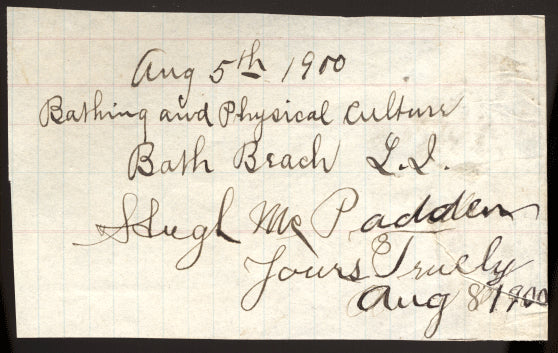 Aug 5th 1900
Bathing and Physical Culture
Bath Beach L.I.
Hugh Mc Padden
Yours Truely
Aug 8 1900